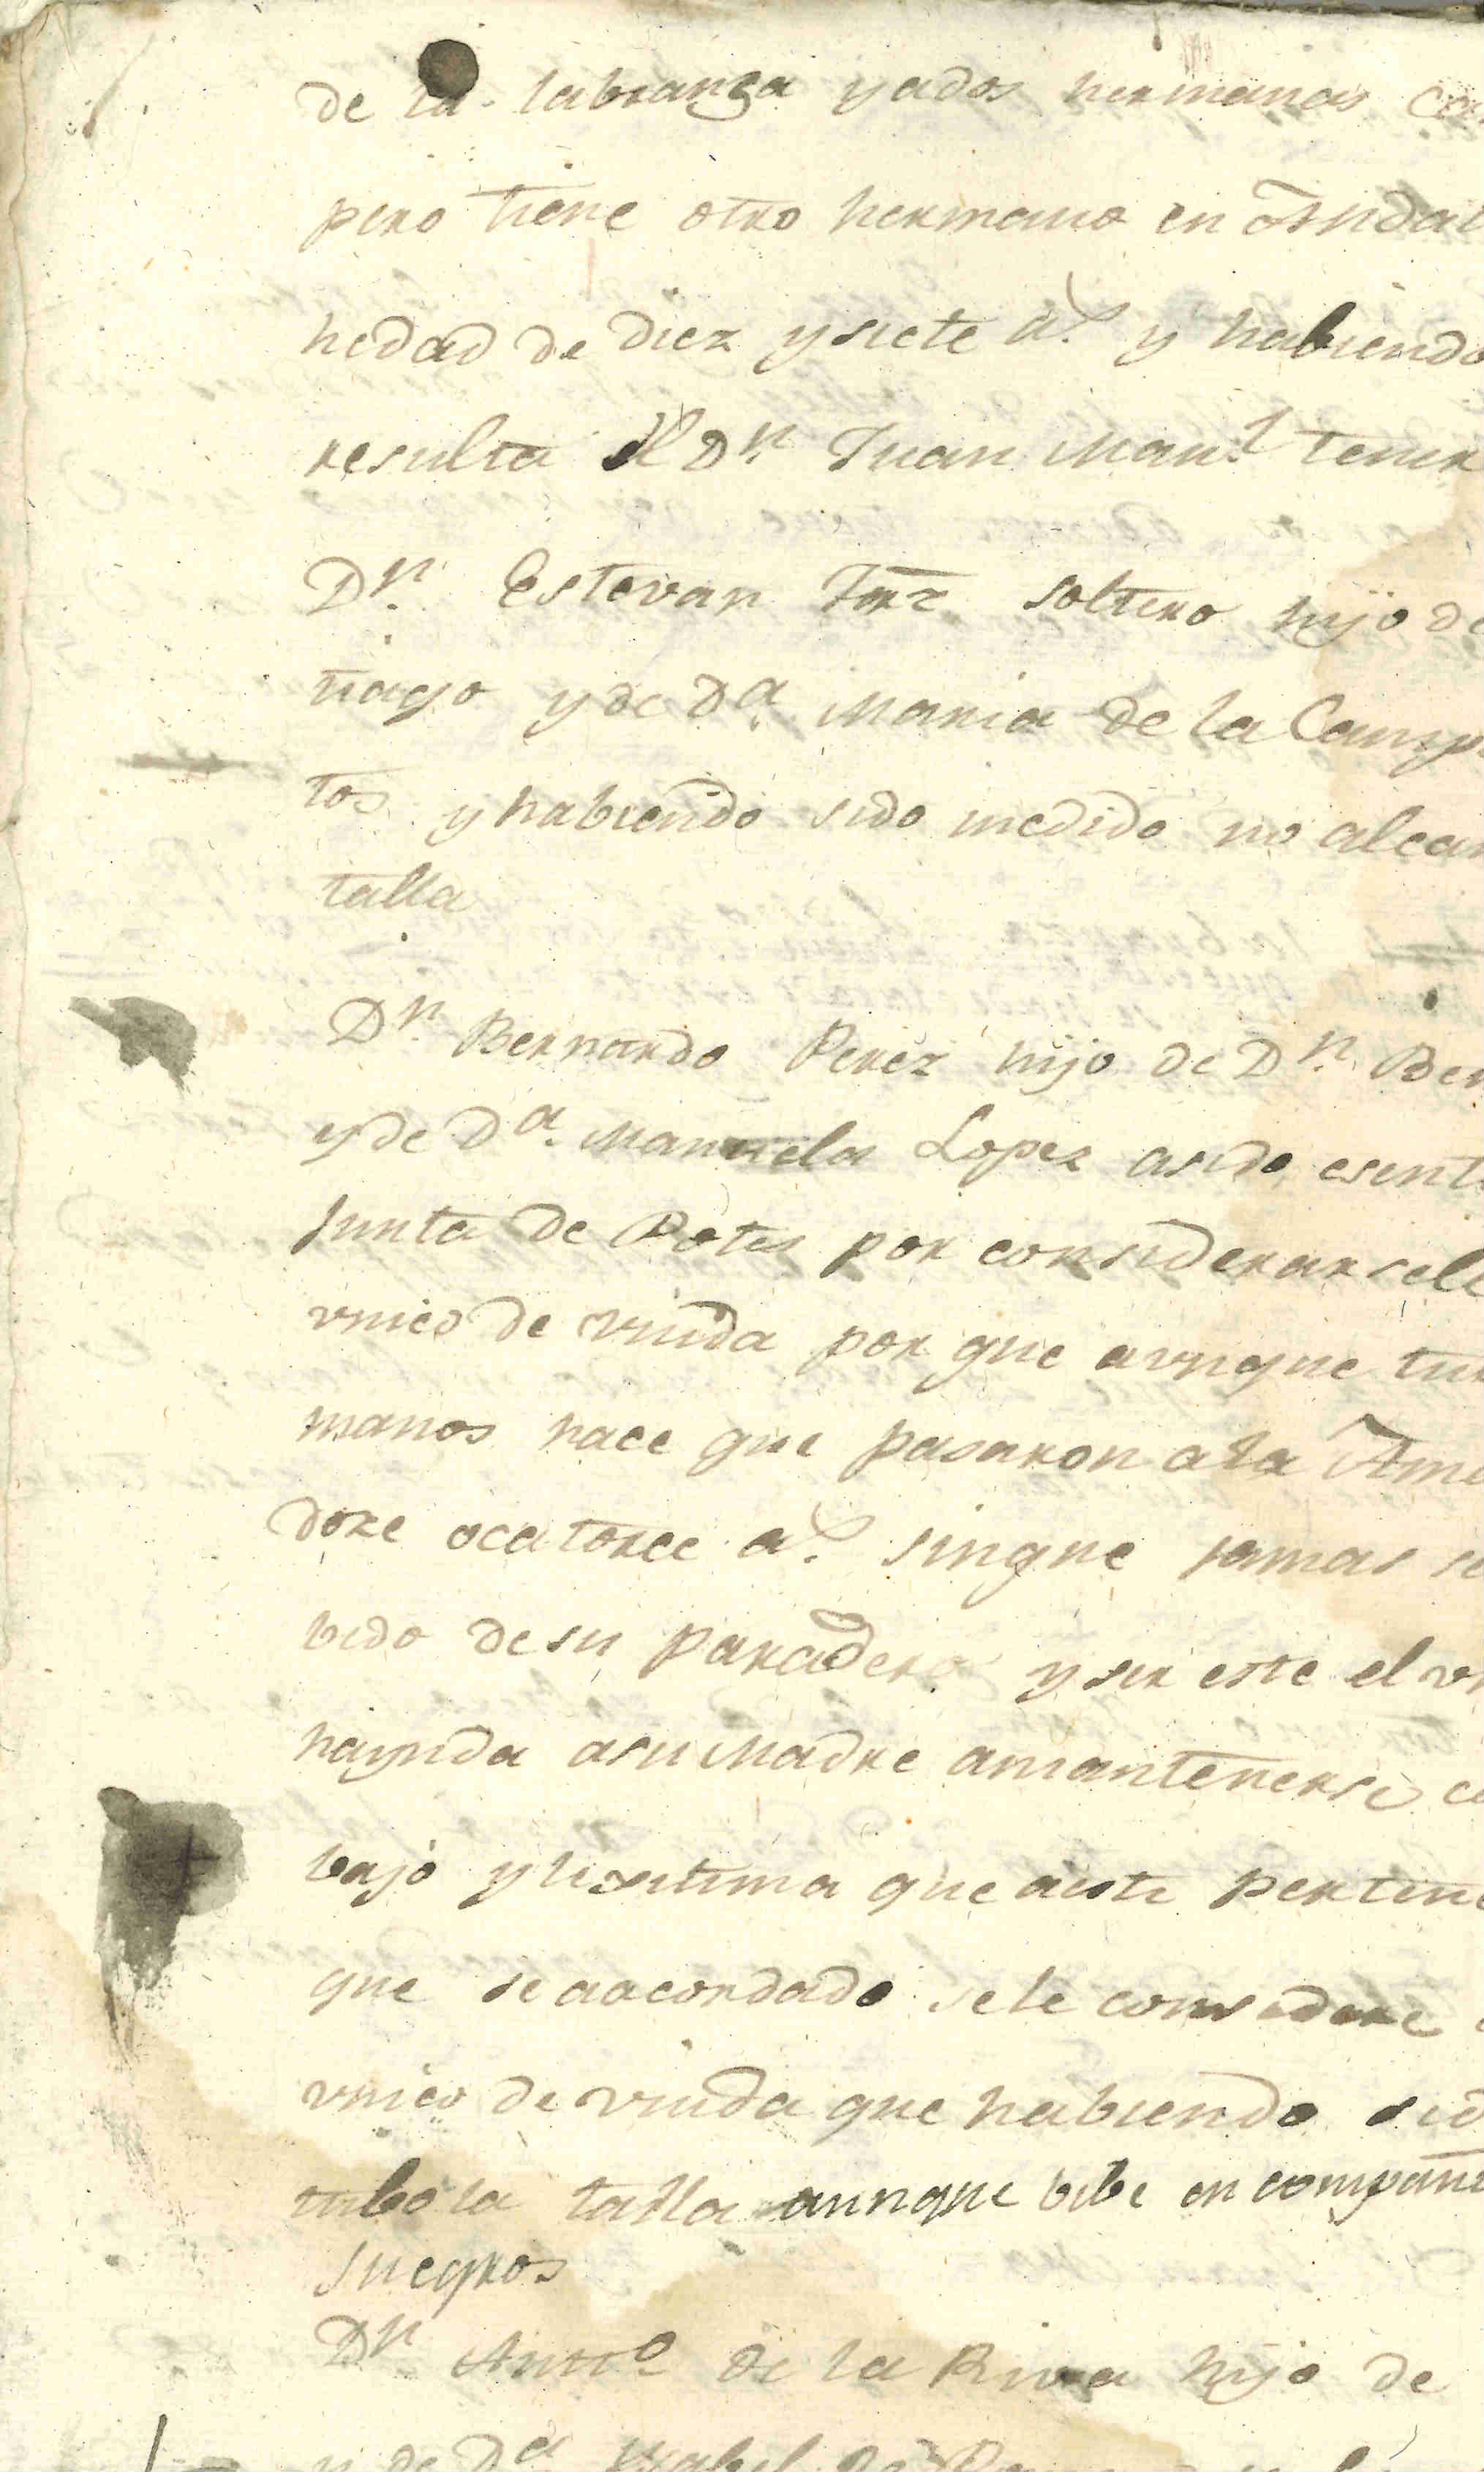 de la labranza yados hermanas ca
pero tiene otro hermano en
hedad de diez ysiete a.s y habiendo
resulta Dn. Juan Man.l tener
Dn. Estevan Frnz soltero hijo de
tiago y de Da. Maria de la Camp
tos y habiendo sido medido no alcan
talla
Dn. Bernardo Perez hijo de Dn. Ber
y de Da. Manuela Lopez asido esent
Junta de Potes por considerarsele
vnico de viuda por que avnque tu
manos hace que pasaron ala Ame
doze ocatorce a.s sinque jamas
bido desu paradero y ser este el vn
hayuda asu Madre amantenerse
bajo y lexitima que aeste pertene
que seaacordado sele considere
vnico de viuda que habiendo sid
tubo la talla aunque bibe en compañi
suegros
Dn Anto de la Riva hijo de
y de Da Ysabel de